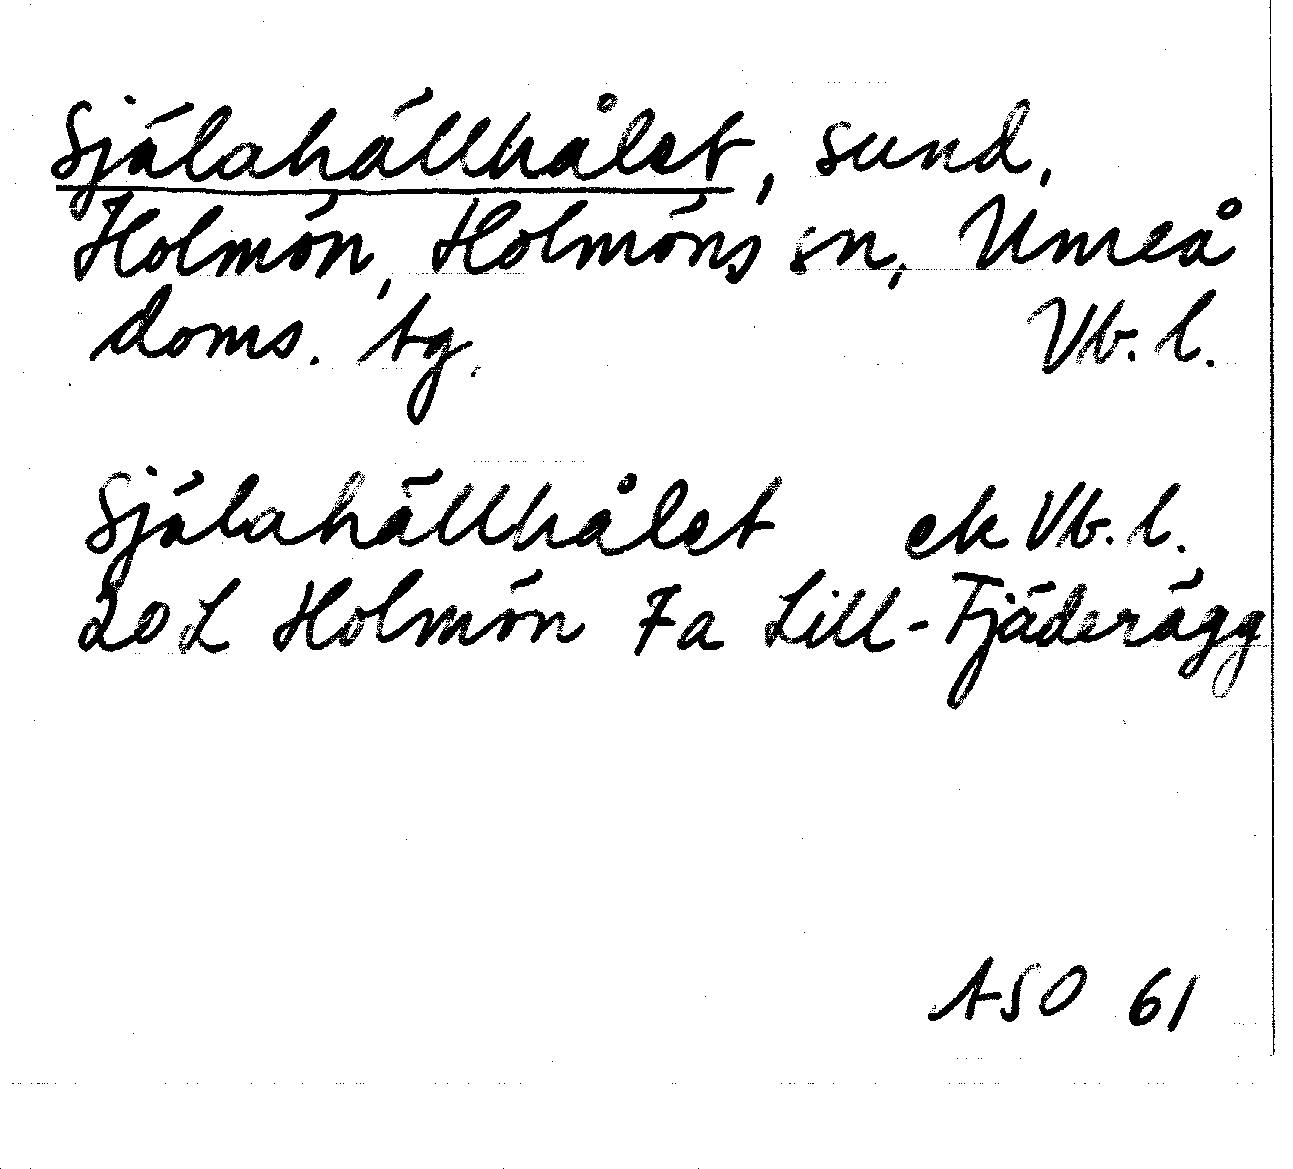 Själahällhålet, sund,
Holmön, Holmöns sn, Umeå
doms. tg. Vb. l.
Själahällhålet ek Vb. l.
20 L Holmön 7a Lill-Fjäderägg
ASO 61